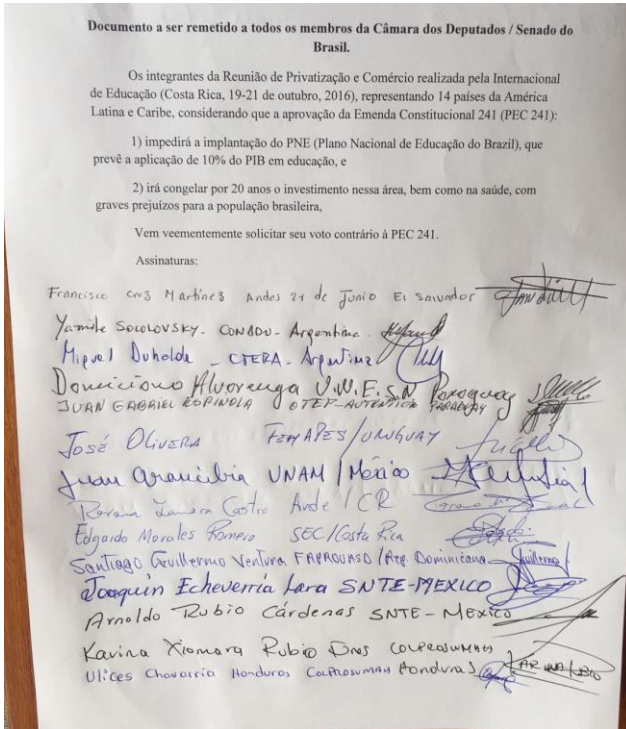 Documento a ser remetido a todos os membros da Câmara dos Deputados / Senado do
Brasil.
Os integrantes da Reunião de Privatização e Comércio realizada pela Internacional
de Educação (Costa Rica, 19-21 de outubro, 2016), representando 14 países da América
Latina e Caribe, considerando que a aprovação da Emenda Constitucional 241 (PEC 241):
1) impedirá a implantação do PNE (Plano Nacional de Educação do Brazil), que
prevê a aplicação de 10% do PIB em educação, e
2) irá congelar por 20 anos o investimento nessa área, bem como na saúde, com
graves prejuízos para a população brasileira,
Vem veementemente solicitar seu voto contrário à PEC 241.
Assinaturas:
Francisco Cruz Martínez Andes 21 de Junio El Salvador
Yamile Socolovsky - CONADU - Argentina
Miguel Duhalde - CTERA - Argentina
Domiciano Alvarenga U.N.E.S.N Paraguay
JUAN GABRIEL ESPINOLA OTEP-AUTENTICA PARAGUAY
José OLIVERA FENAPES/URUGUAY
Juan Arancibia UNAM/México
Castro Ande/CR
Edgardo Morales Romero SEC/Costa Rica
Santiago Guillermo Ventura FAPROUASD/Rep. Dominicana
Joaquín Echeverría Lara SNTE-MEXICO
Arnoldo Rubio Cárdenas SNTE-MEXICO
Karina Xiomara Rubio COLPROSUMAH
Ulices Chavarria Honduras COLPROSUMAH Honduras